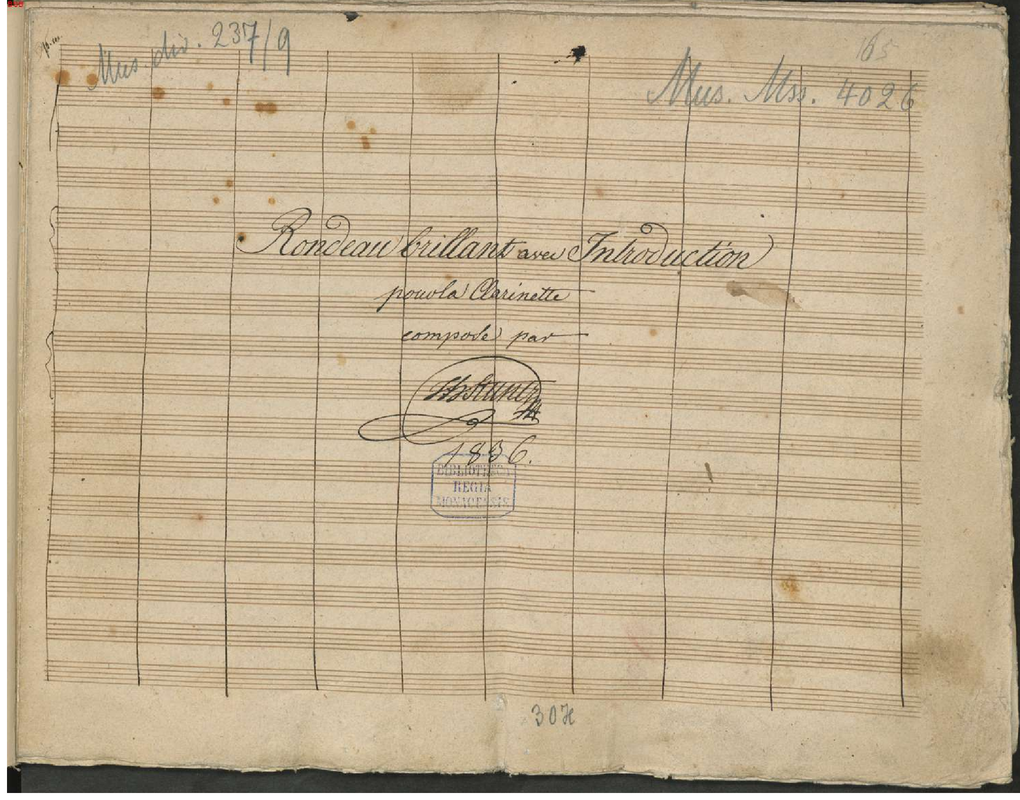 Mus. div. 237/9
165
Mus. Mss. 4026
Rondeau brillant avec Introduction
pour la Clarinette
composé par
HStuntz
1836.
BIBLIOTHECA
REGIA
MONACENSIS
30